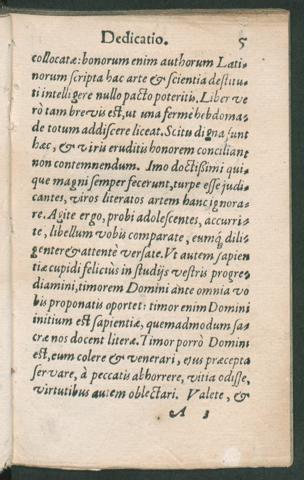 Dedicatio. 5
collocatæ: bonorum enim authorum Lati-
norum scripta hac arte & scientia destitu-
ti intelligere nullo pacto poteritis. Liber ve
rò tam brevis est, ut una fermè hebdoma-
de totum addiscere liceat. Scitu digna sunt
hæc, & viris eruditis honorem conciliant
non contemnendum. Imo doctissimi qui-
que magni semper fecerunt, turpe esse judi-
cantes, viros literatos artem hanc ignora-
re. Agite ergo, probi adolescentes, accurri-
te, libellum vobis comparate, eumq́; dili-
genter & attentè versate. Vt autem sapien
tiæ cupidi feliciùs in studijs vestris progre-
diamini, timorem Domini ante omnia vo
bis proponatis oportet: timor enim Domini
initium est sapientiæ, quemadmodum sa-
cræ nos docent literæ. Timor porrò Domini
est, eum colere & venerari, ejus præcepta
servare, à peccatis abhorrere, vitia odisse,
virtutibus autem oblectari. Valete, &
A 3